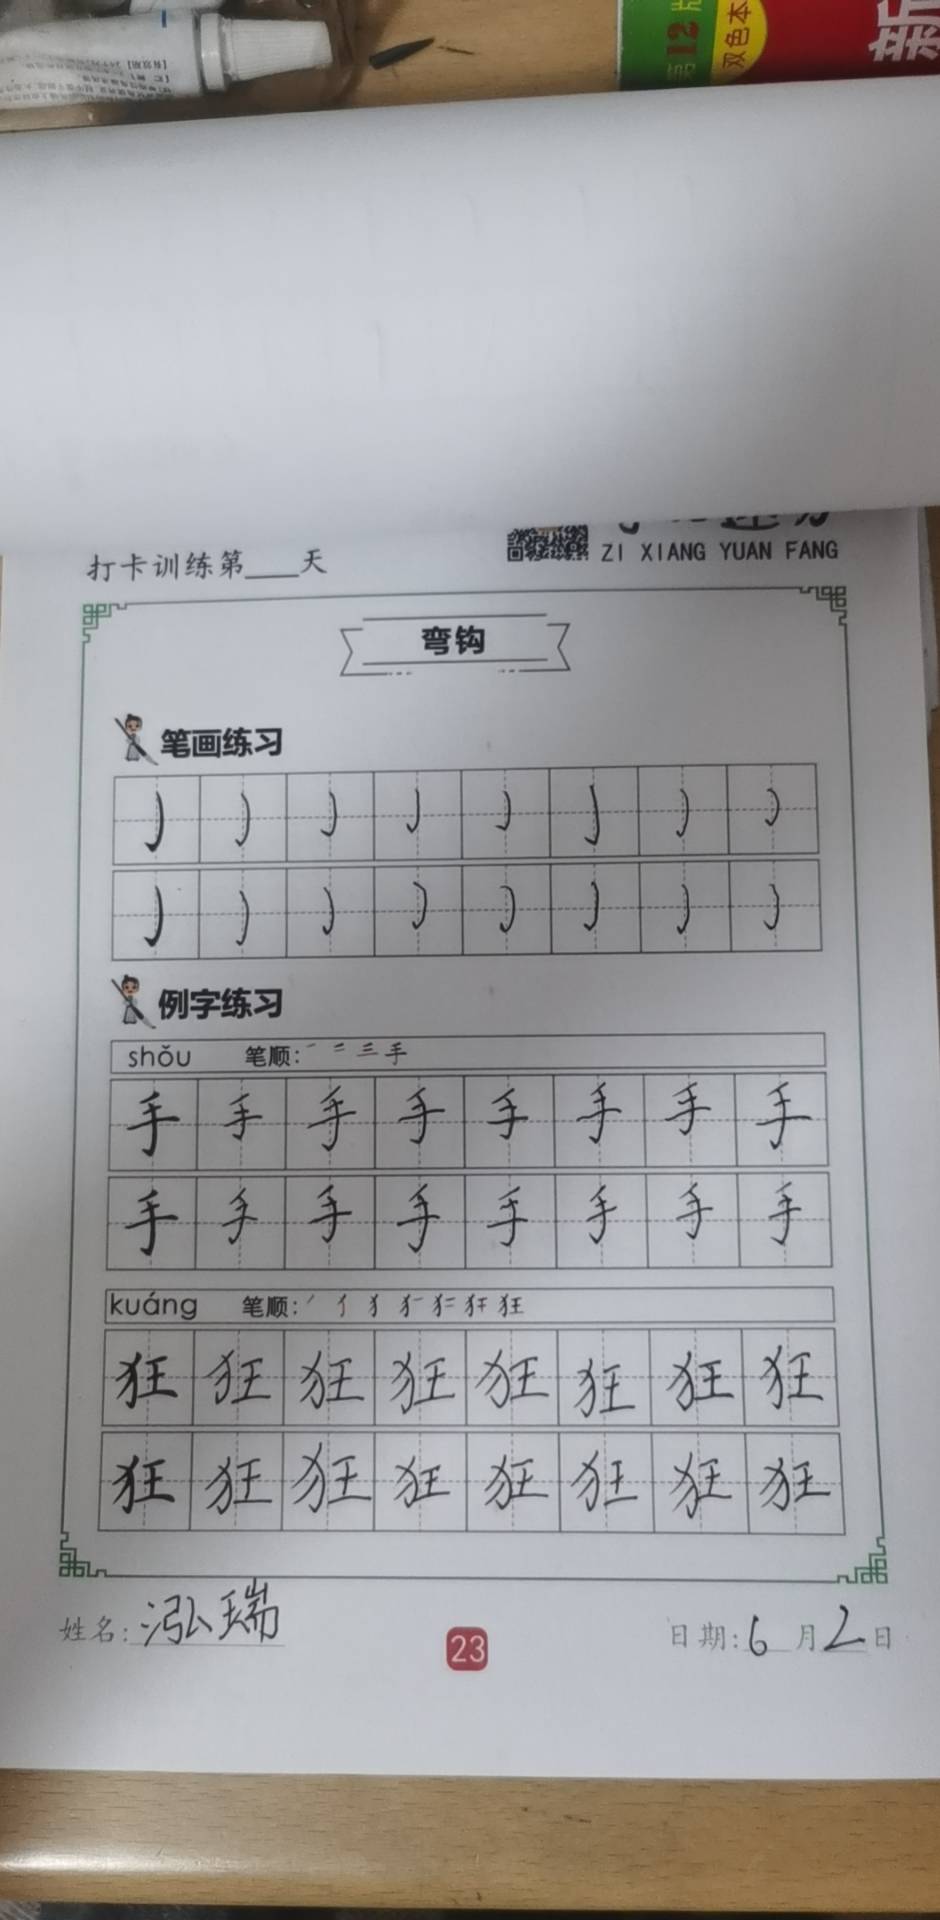 第12版
双色本
新
打卡训练第____天
ZI XIANG YUAN FANG
弯钩
笔画练习
例字练习
shǒu 笔顺: 一 二 三 手
手 手 手 手 手 手 手 手
手 手 手 手 手 手 手 手
kuáng 笔顺: 狂
狂 狂 狂 狂 狂 狂 狂 狂
狂 狂 狂 狂 狂 狂 狂 狂
姓名: 泓瑞
23
日期: 6 月 2 日